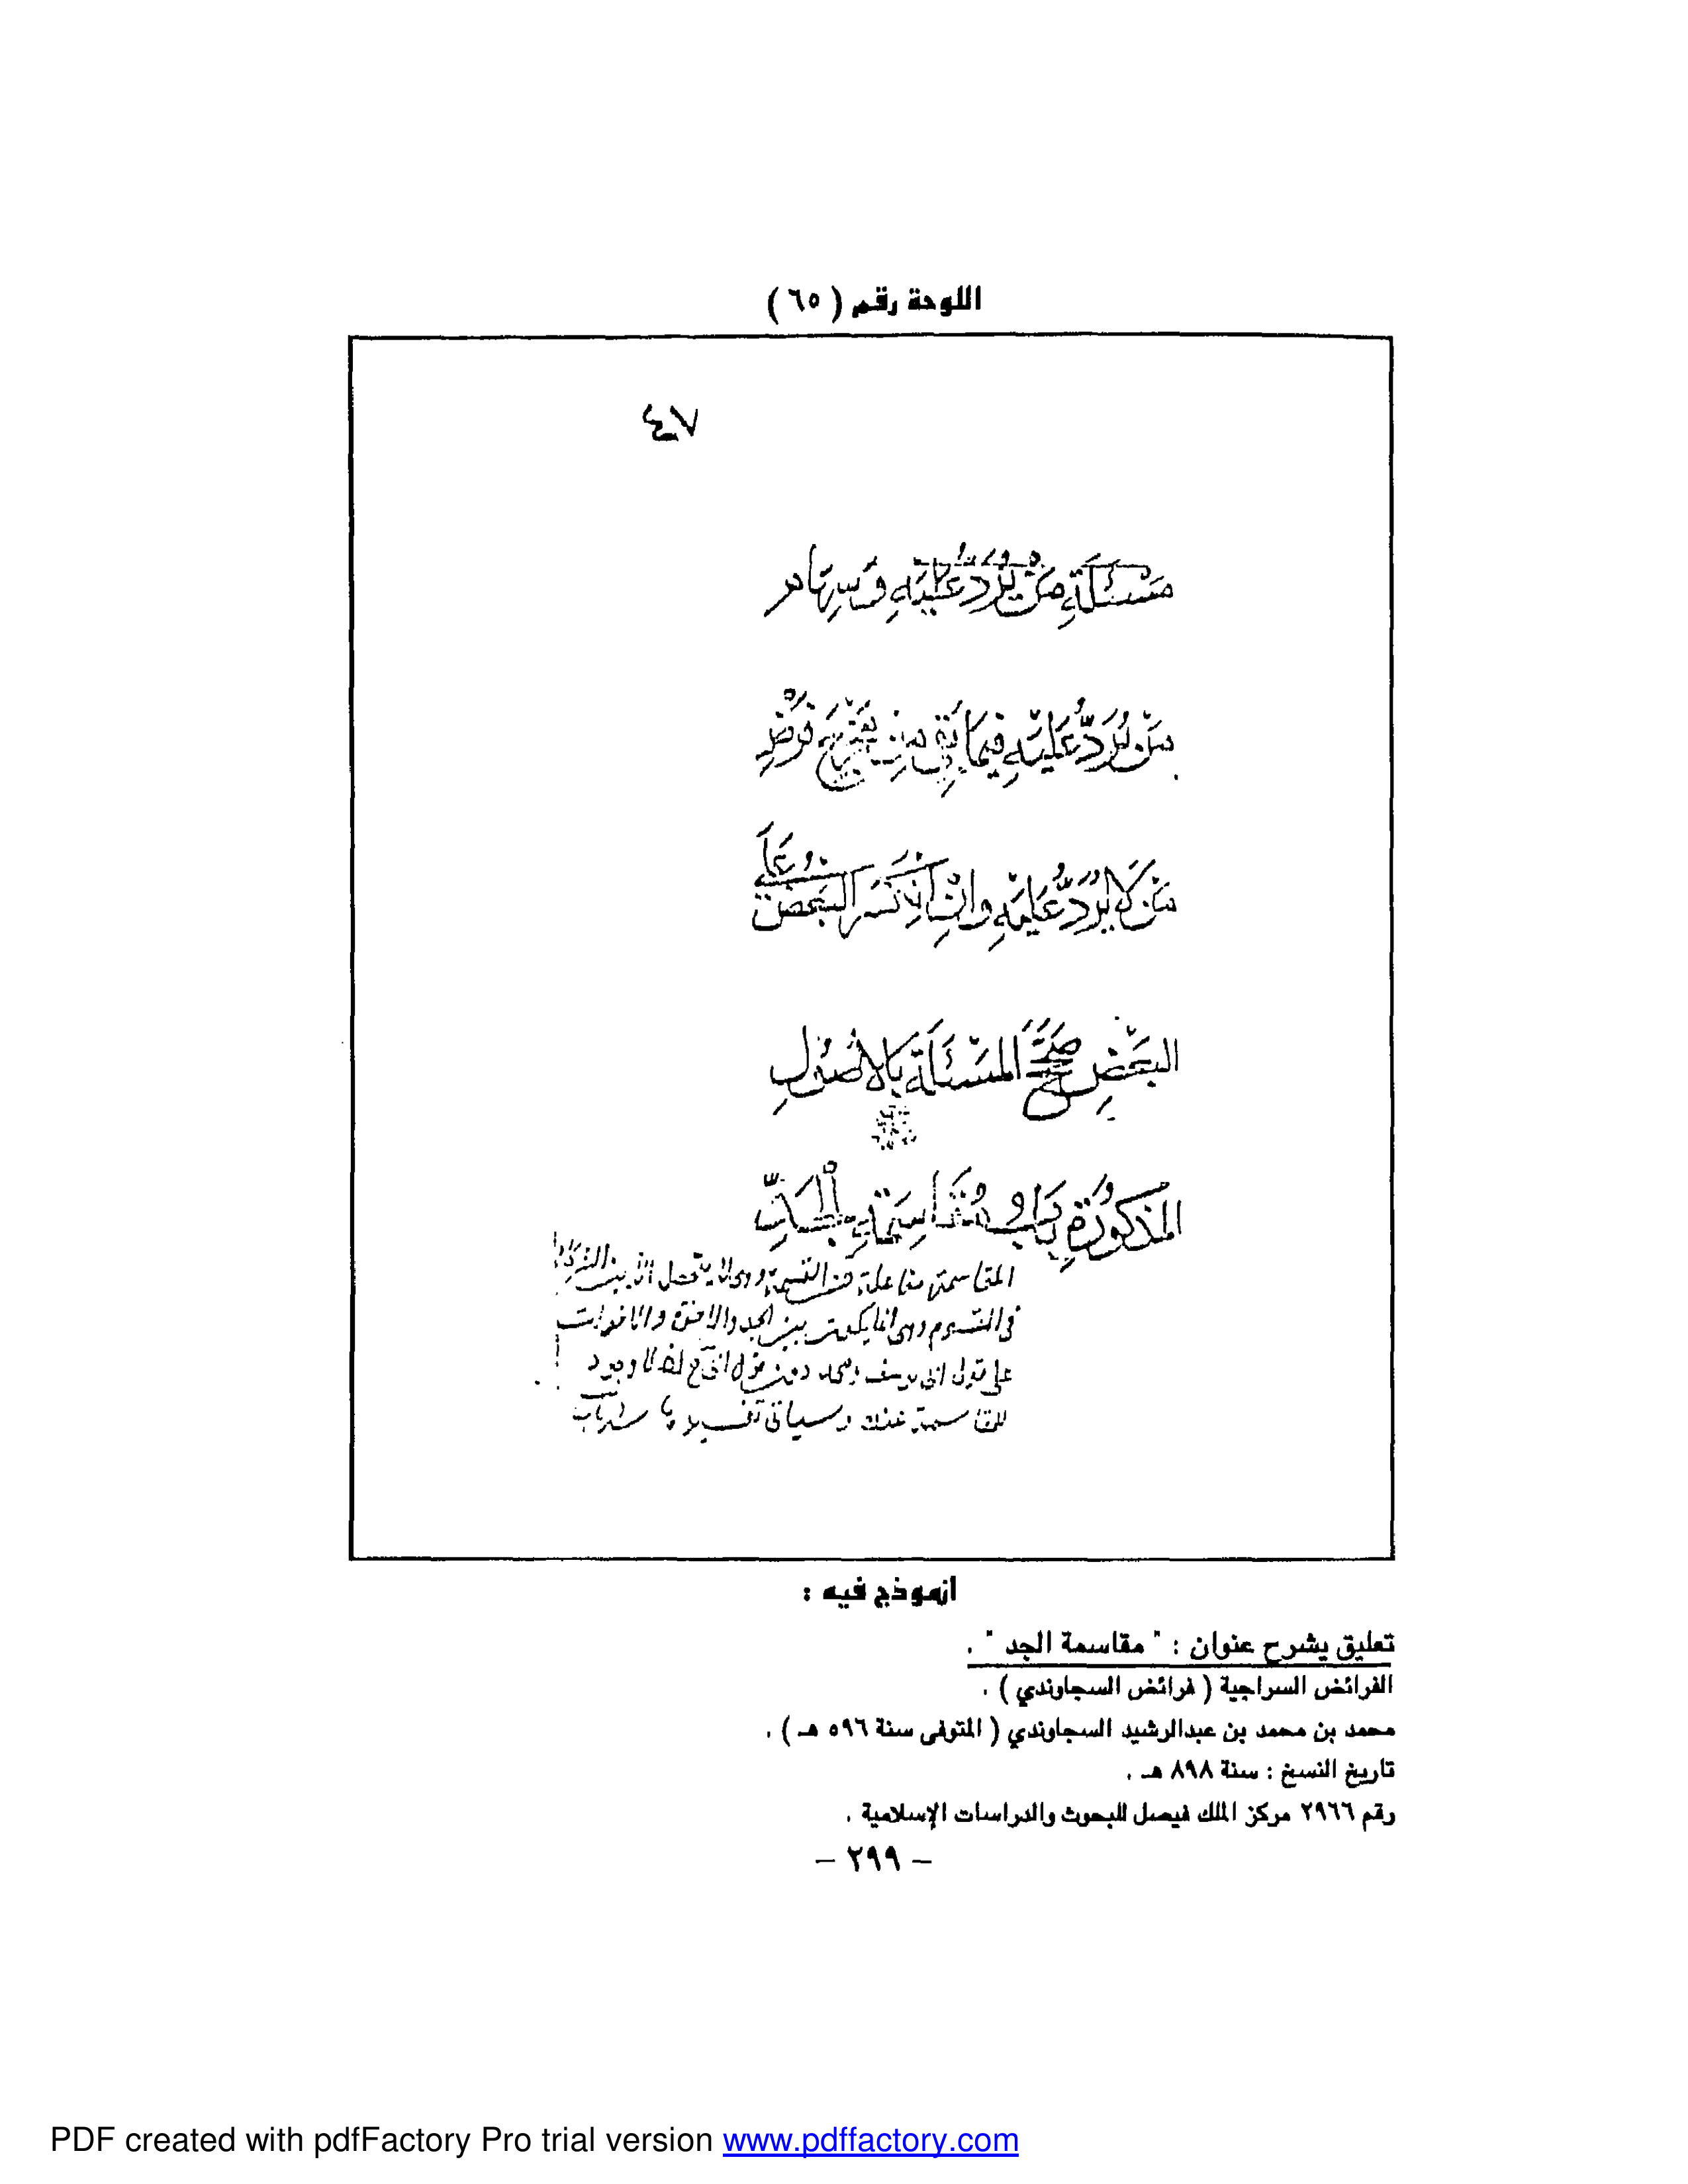 اللوحة رقم ( ٦٥ )
٤٧
مَسْئَلَةِ مَنْ يُرَدُّ عَلَيْهِ وَسِهَامُ
مَنْ يُرَدُّ عَلَيْهِ فِيمَا بَقِيَ مِنْ مَخْرَجِ فَرْضِ
مَنْ لَا يُرَدُّ عَلَيْهِ وَاِنِ انْكَسَرَ الْبَعْضُ عَلَى
البَعْضِ صُحِّحَ المَسْئَلَةُ بِالأُصُولِ
المَذكُورَةِ بَابُ مُقَاسَمَةِ الْجَدِّ
المقاسمة مفاعلة من القسمة وهى لا يتحصل الا بين الشركاء
فى المقسوم وهى انما يكون بين الجد والاخوة والاخوات
على قول ابى يوسف ومحمد دون قول ابى ح لفا لا وجود
للمقاسمة عنده وسياتى تفسير
انموذج فيه :
تعليق يشرح عنوان : " مقاسمة الجد " .
الفرائض السراجية ( فرائض السجاوندي ) .
محمد بن محمد بن عبدالرشيد السجاوندي ( المتوفى سنة ٥٩٦ هـ ) .
تاريخ النسخ : سنة ٨٩٨ هـ .
رقم ٢٩٦٦ مركز الملك فيصل للبحوث والدراسات الإسلامية .
– ٢٩٩ –
PDF created with pdfFactory Pro trial version www.pdffactory.com